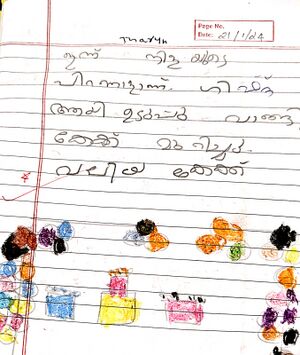 Tharun
Page No.
Date: 21/1/24
ഇന്ന് നിളയുടെ
പിറന്നാളാണ്. ഗിഫ്റ്റ്
ആയി ഉടുപ്പ് വാങ്ങി
കേക്ക് മുറിച്ചു.
വലിയ കേക്ക്